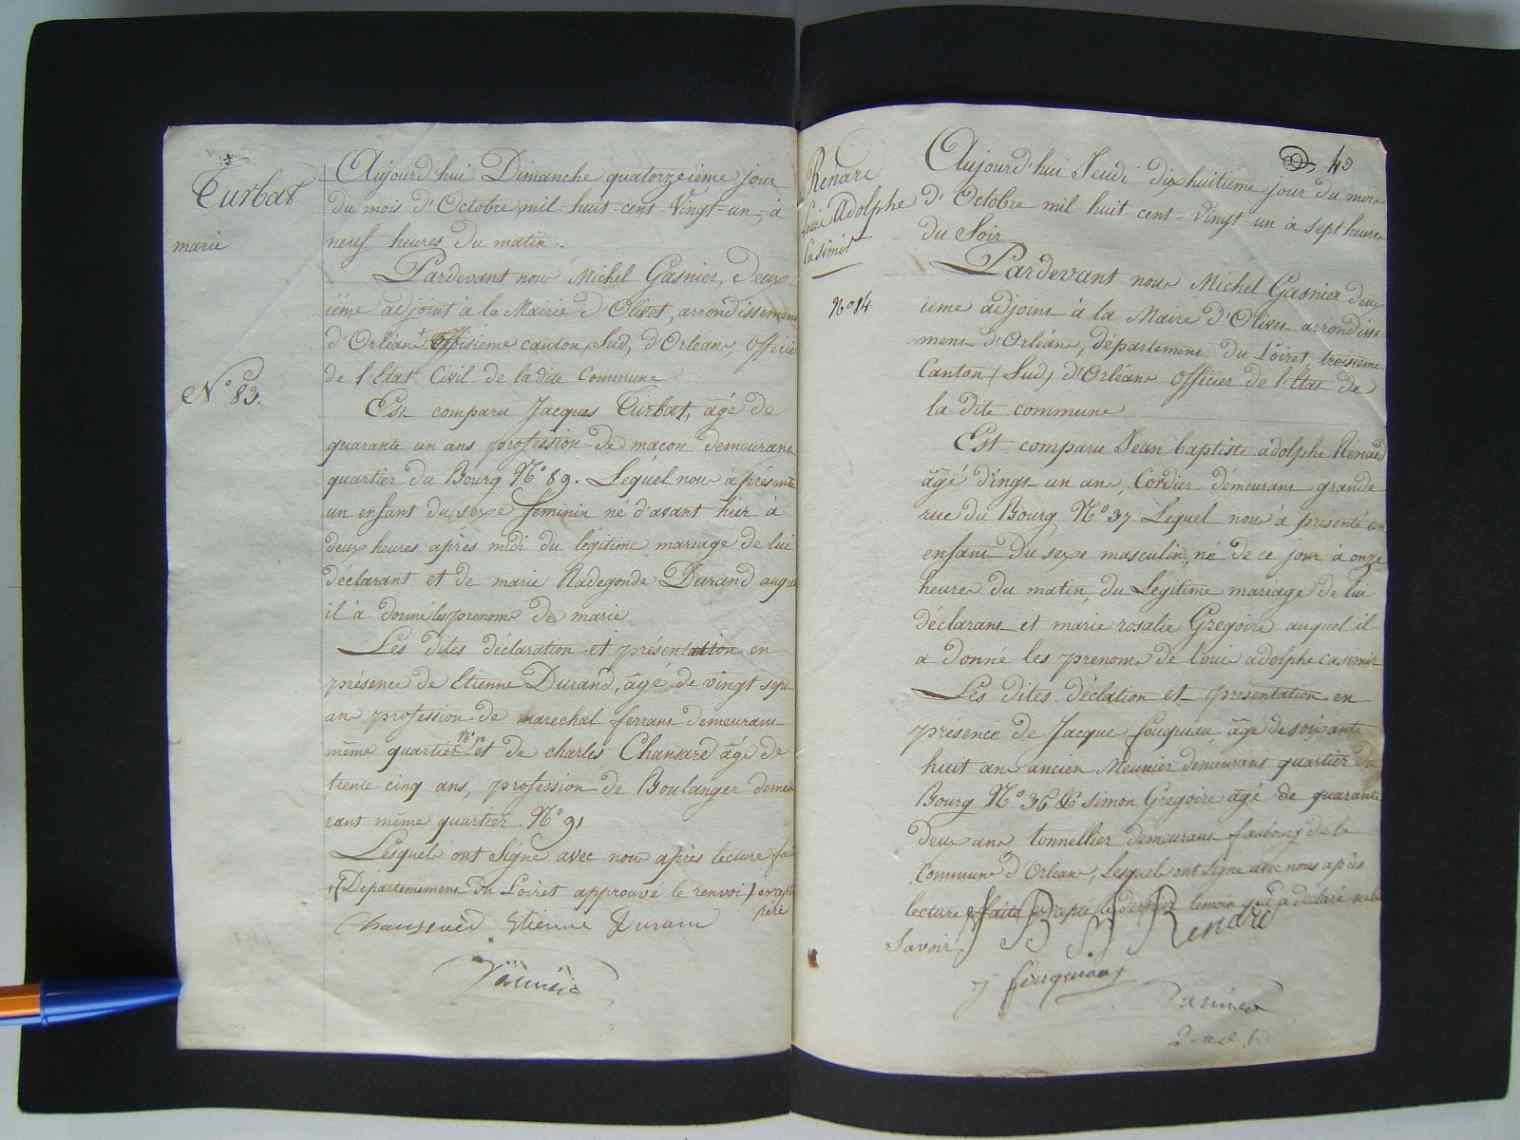 Turbat
marie
N° 83.
Aujourd'hui Dimanche quatorzeième jour
du mois d'Octobre mil huit-cent-Vingt-un, à
neuf heures du matin.
Pardevant nous Michel Gasnier, deux-
ième adjoint à la Mairie d'Olivet, arrondissement
d'Orléans troisième canton, Sud, d'Orléans, officier
de l'Etat Civil de la dite Commune
Est comparu Jacques Turbat, âgé de
quarante un ans profession de maçon demeurant
quartier du Bourg N° 89. Lequel nous à présenté
un enfant du sexe feminin né d'avant hier à
deux heures après midi du légitime mariage de lui
déclarant et de marie Radegonde Durand auquel
il à donné les prenoms de marie
Les dites déclaration et présentation en
présence de Etienne Durand, âgé de vingt sept
ans profession de marechal ferrant demeurant
même quartier et de charles Chansard âgé de
trente cinq ans, profession de Boulanger demeu
rant même quartier N° 91
Lesquels ont Signé avec nous après lecture
(Departemement du Loiret approuvé le renvoi)
Etienne Durand
Renard
Louis Adolphe
Casimir
N° 14
43
Aujourd'hui Jeudi dixhuitième jour du mois
d'Octobre mil huit cent-Vingt un à sept heures
du Soir
Pardevant nous Michel Gasnier deux
ième adjoint à la Maire d'Olivet arrondisse
ment d'Orléans, département du Loiret, troisième
Canton (Sud) d'Orléans officier de l'Etat de
la dite commune
Est comparu Jean baptiste adolphe Renard
âgé d'ingt un ans, Cordier demeurant grande
rue du Bourg N° 37. Lequel nous à présenté un
enfant du sexe masculin, né de ce jour à onze
heures du matin, du Légitime mariage de lui
déclarant et marie rosalie Gregoire auquel il
a donné les prenoms de Louis adolphe casimir
Les dites déclation et présentation en
présence de Jacque fouqueau, âgé de soixante
huit ans ancien Meunier demeurant quartier du
Bourg N° 36 Et simon Gregoire âgé de quarante
deux ans tonnellier demeurant faubourg de la
Commune d'Orléans, Lesquels ont signé avec nous après
lecture faite excepté le dernier temoin qui a déclaré ne le
Savoir
J B A Renard
J fouqueau